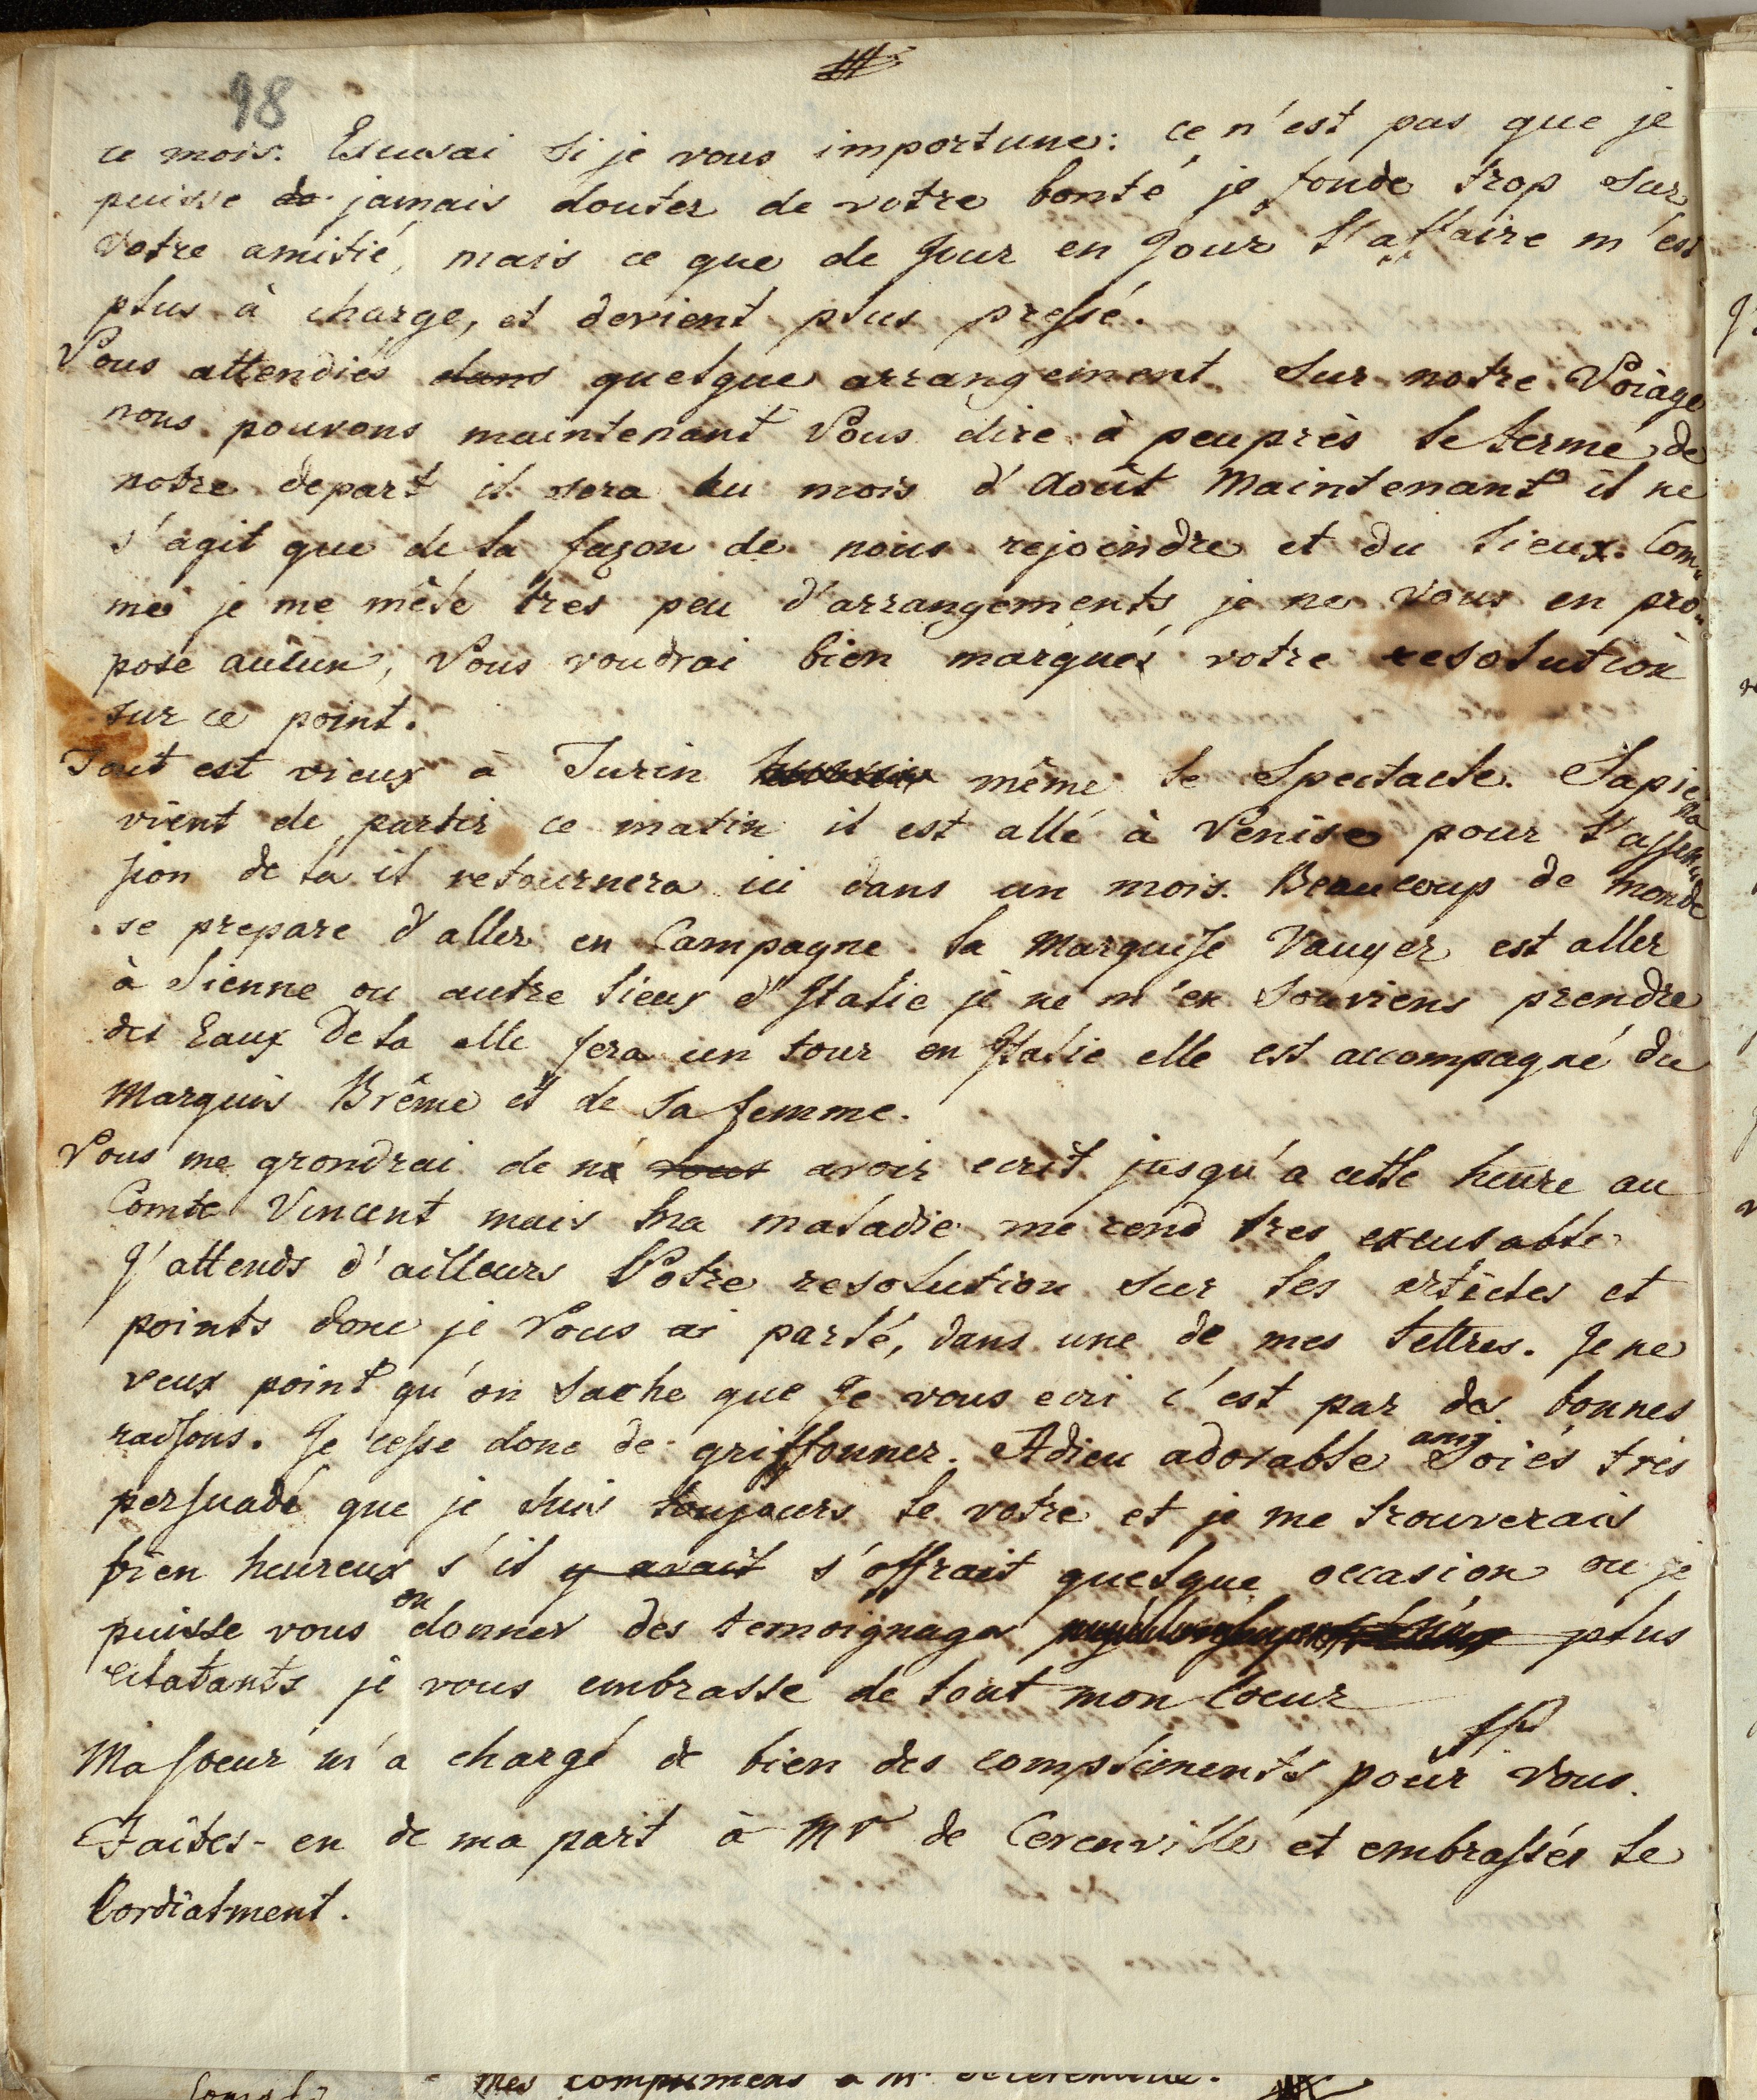 98
ce mois. Escusai si je vous importune: ce n'est pas que je
puisse de jamais douter de votre bonté je fonde trop sur
votre amitié, mais ce que de Jour en Jour l'affaire m'est
plus à charge, et devient plus pressé.
Vous attendiés dans quelque arrangement sur notre Voiage
nous pouvons maintenant Vous dire à peuprès le terme de
notre depart il sera au mois d'Août Maintenant il ne
s'agit que de la façon de nous rejoindre et du lieux. Com„
me je me mêle tres peu d'arrangements, je ne vous en pro„
pose aucun, Vous voudrai bien marqués votre resolution
sur ce point.
Tout est vieux à Turin même le Spectacle. Lapie
vient de partir ce matin il est allé à Venise pour l'assen„
sion de la il retournera ici dans un mois. Beaucoup de monde
se prepare d'aller en Campagne la Marquise Vauyer est aller
à Sienne ou autre lieux d'Italie je ne m'en souviens prendre
des Eaux De la elle fera un tour en Italie elle est accompagné du
Marquis Brême et de sa femme.
Vous me grondrai de n'a vous avoir ecrit jusqu'a cette heure au
Comte Vincent mais ma maladie me rend tres excusable
J'attends d'ailleurs Votre resolution sur les articles et
points donc je Vous ai parlé, dans une de mes lettres. Je ne
veux point qu'on sache que Je vous ecri c'est par des bonnes
raisons. Je cesse donc de griffonner. Adieu adorable ami Soiés très
persuadé que je suis toujours le votre et je me trouverais
bien heureux s'il y avait s'offrait quelque occasion ou je
puisse vous en donner des temoignages plus
eclatants je vous embrasse de tout mon Coeur
Ma soeur m'a chargé de bien des compliments pour vous.
Faites-en de ma part à Mr de Cerenville et embrassés le
Cordialment.
Mes complimens a Mr